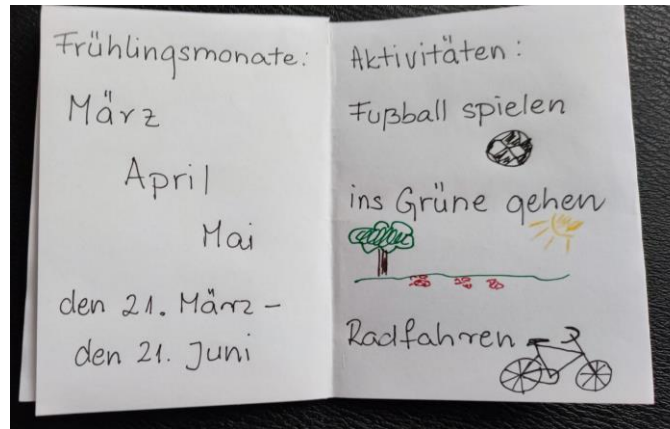 Frühlingsmonate:
März
April
Mai
den 21. März –
den 21. Juni
Aktivitäten:
Fußball spielen
ins Grüne gehen
Radfahren